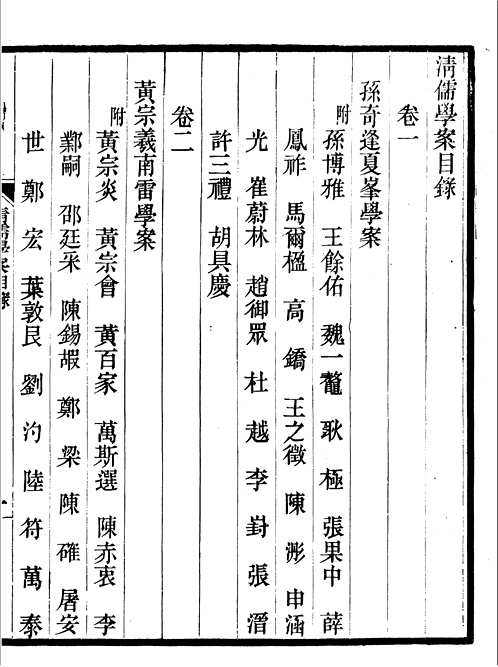 清儒學案目錄
卷一
孫奇逢夏峯學案
附 孫博雅 王餘佑 魏一鼇 耿極 張果中 薛
鳳祚 馬爾楹 高鐈 王之徵 陳澎 申涵
光 崔蔚林 趙御眾 杜越 李崶 張潛
許三禮 胡具慶
卷二
黃宗羲南雷學案
附 黃宗炎 黃宗會 黃百家 萬斯選 陳赤衷 李
鄴嗣 邵廷采 陳錫嘏 鄭梁 陳確 屠安
世 鄭宏 葉敦艮 劉汋 陸符 萬泰
清儒學案目錄